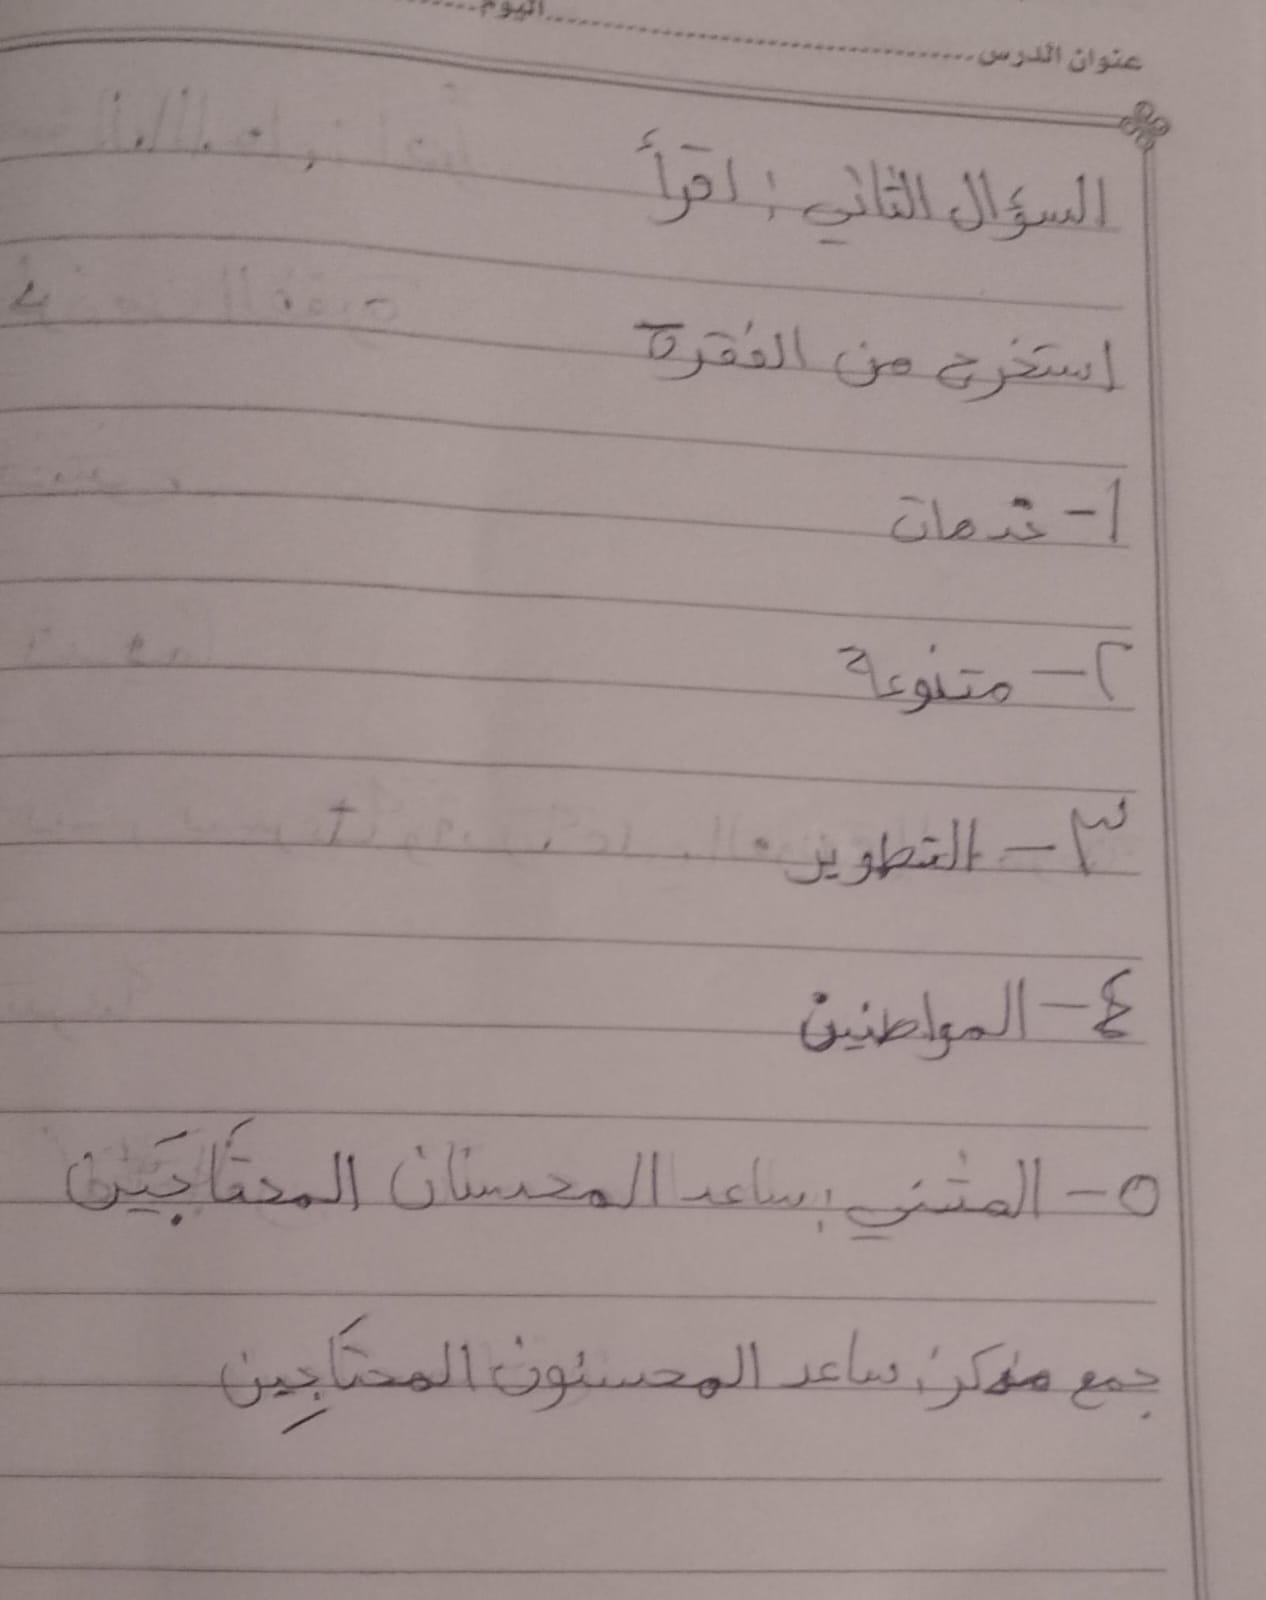 عنوان الدرس ........................ اليوم ........
السؤال الثاني : اقرأ
استخرج من الفقرة
١- خدمات
٢- متنوعة
٣- التطوير
٤- المواطنين
٥- المثني : ساعد المحسنان المحتَاجَين
جمع مذكر : ساعد المحسنون المحتَاجِين